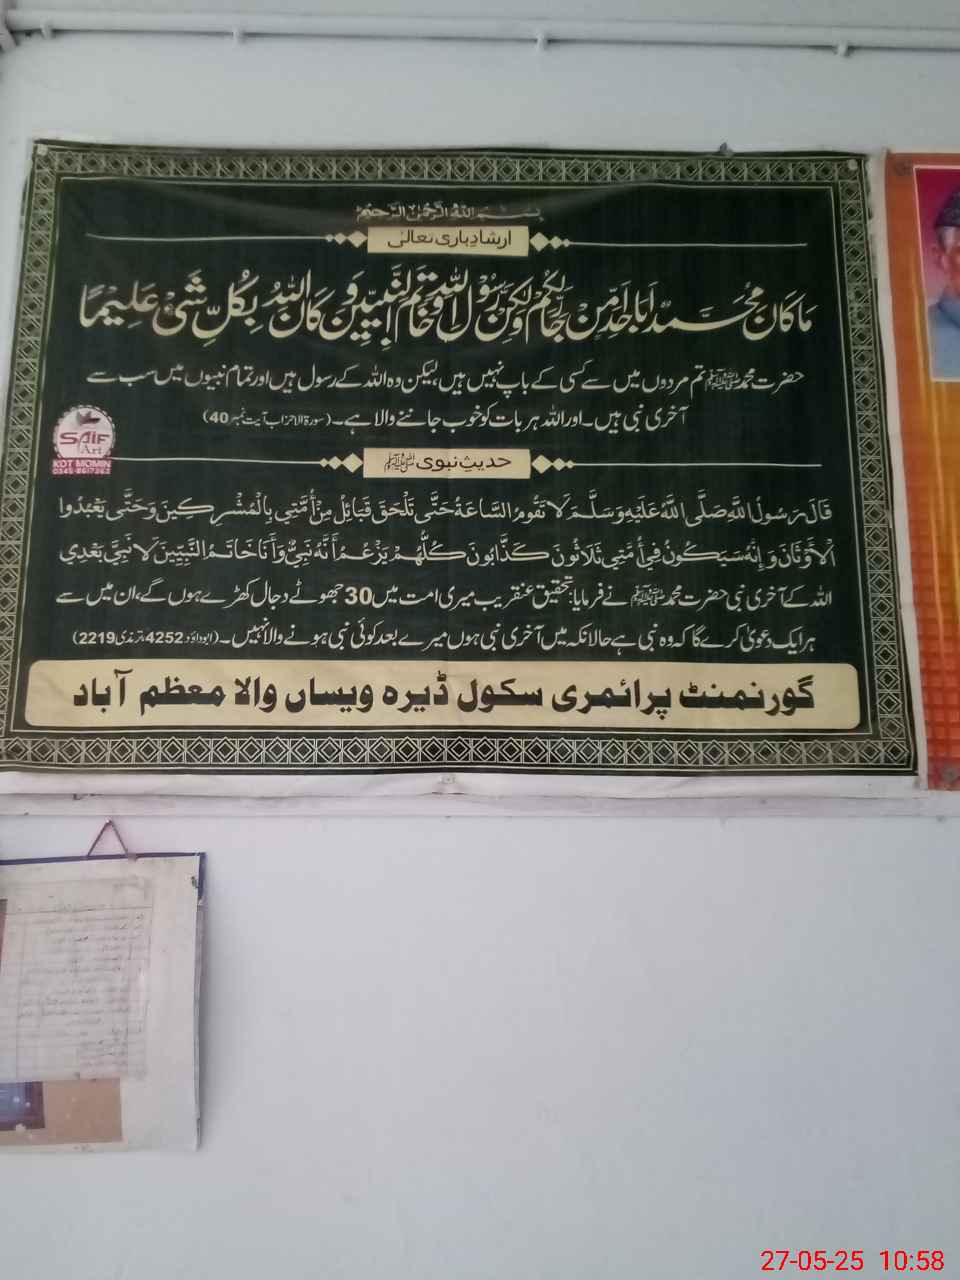 بسم الله الرحمن الرحيم
ارشاد باری تعالیٰ
مَا كَانَ مُحَمَّدٌ اَبَا اَحَدٍ مِّنْ رِّجَالِكُمْ وَلٰكِنْ رَّسُوْلَ اللّٰهِ وَخَاتَمَ النَّبِيّٖنَ وَكَانَ اللّٰهُ بِكُلِّ شَيْءٍ عَلِيْمًا
حضرت محمد ﷺ تم مردوں میں سے کسی کے باپ نہیں ہیں، لیکن وہ اللہ کے رسول ہیں اور تمام نبیوں میں سب سے
آخری نبی ہیں۔ اور اللہ ہر بات کو خوب جاننے والا ہے۔ (سورۃ الاحزاب آیت نمبر 40)
SAIF
Art
KOT MOMIN
حدیثِ نبوی ﷺ
قَالَ رَسُولُ اللَّهِ صَلَّى اللَّهُ عَلَيْهِ وَسَلَّمَ لَا تَقُومُ السَّاعَةُ حَتَّى تَلْحَقَ قَبَائِلُ مِنْ أُمَّتِي بِالْمُشْرِكِينَ وَحَتَّى يَعْبُدُوا
الْأَوْثَانَ وَإِنَّهُ سَيَكُونُ فِي أُمَّتِي ثَلَاثُونَ كَذَّابُونَ كُلُّهُمْ يَزْعُمُ أَنَّهُ نَبِيٌّ وَأَنَا خَاتَمُ النَّبِيِّينَ لَا نَبِيَّ بَعْدِي
اللہ کے آخری نبی حضرت محمد ﷺ نے فرمایا: تحقیق عنقریب میری امت میں 30 جھوٹے دجال کھڑے ہوں گے، ان میں سے
ہر ایک دعویٰ کرے گا کہ وہ نبی ہے حالانکہ میں آخری نبی ہوں میرے بعد کوئی نبی ہونے والا نہیں۔ (ابوداؤد 4252، ترمذی 2219)
گورنمنٹ پرائمری سکول ڈیرہ ویساں والا معظم آباد
27-05-25 10:58